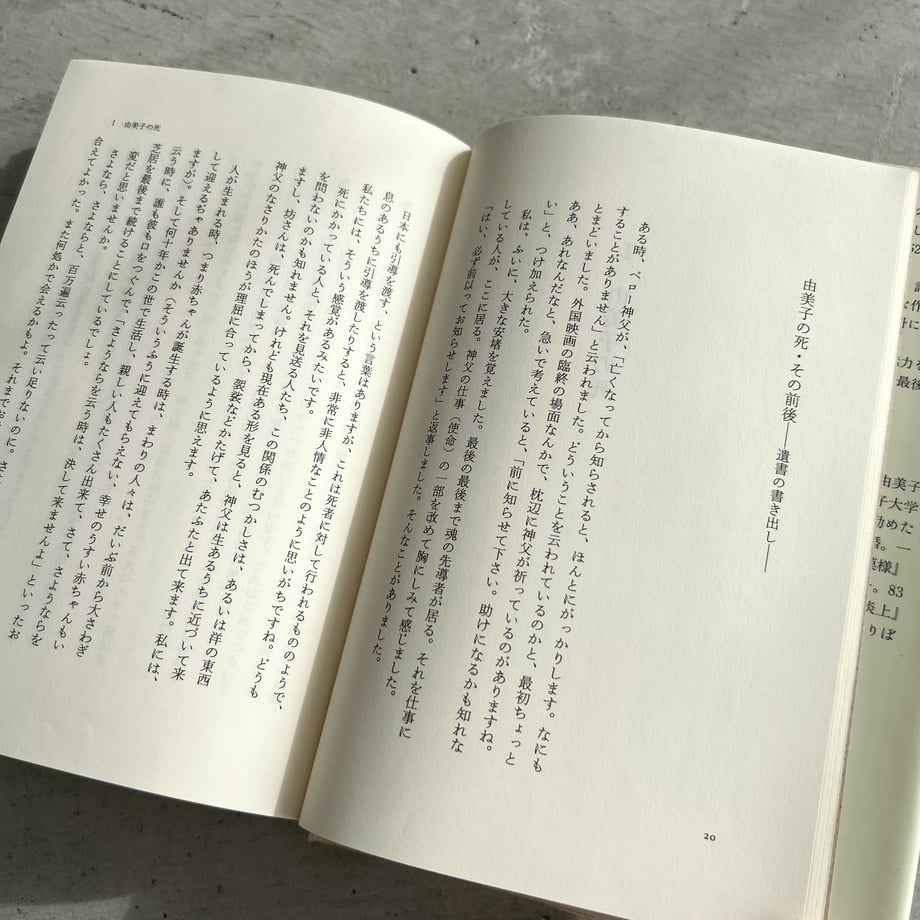 由美子の死・その前後──遺書の書き出し──
ある時、ベロー神父が、「亡くなってから知らされると、ほんとにがっかりします。なにも
することがありません」と云われました。どういうことを云われているのかと、最初ちょっと
とまどいました。外国映画の臨終の場面なんかで、枕辺に神父が祈っているのがありますね。
ああ、あれなんだなと、急いで考えていると、「前に知らせて下さい。助けになるかも知れな
い」と、つけ加えられた。
私は、ふいに、大きな安堵を覚えました。最後の最後まで魂の先導者が居る。それを仕事に
している人が、ここに居る。神父の仕事（使命）の一部を改めて胸にしみて感じました。
「はい、必ず前以ってお知らせします」と返事しました。そんなことがありました。
20
1 由美子の死
日本にも引導を渡す、という言葉はありますが、これは死者に対して行われるもののようで、
息のあるうちに引導を渡したりすると、非常に非人情なことのように思いがちですね。どうも
私たちには、そういう感覚があるみたいです。
死にかかっている人と、それを見送る人たち、この関係のむつかしさは、あるいは洋の東西
を問わないのかも知れません。けれども現在ある形を見ると、神父は生あるうちに近づいて来
ますし、坊さんは、死んでしまってから、袈裟などかたげて、あたふたと出て来ます。私には、
神父のなさりかたのほうが理屈に合っているように思えます。
人が生まれる時、つまり赤ちゃんが誕生する時は、まわりの人々は、だいぶ前から大さわぎ
して迎えるぢゃありませんか（そういうふうに迎えてもらえない、幸せのうすい赤ちゃんもい
ますが）。そして何十年かこの世で生活し、親しい人もたくさん出来て、さて、さようならを
云う時に、誰も彼も口をつぐんで、「さようならを云う時は、決して来ませんよ」といったお
芝居を最後まで続けることにしているでしょ。
変だと思いませんか。
さよなら、さよならと、百万遍云ったって云い足りないのに。
合えてよかった。また何処かで会えるかもよ。それまでお
由美子
子大学
勧めた
83
炎上』
りぼ